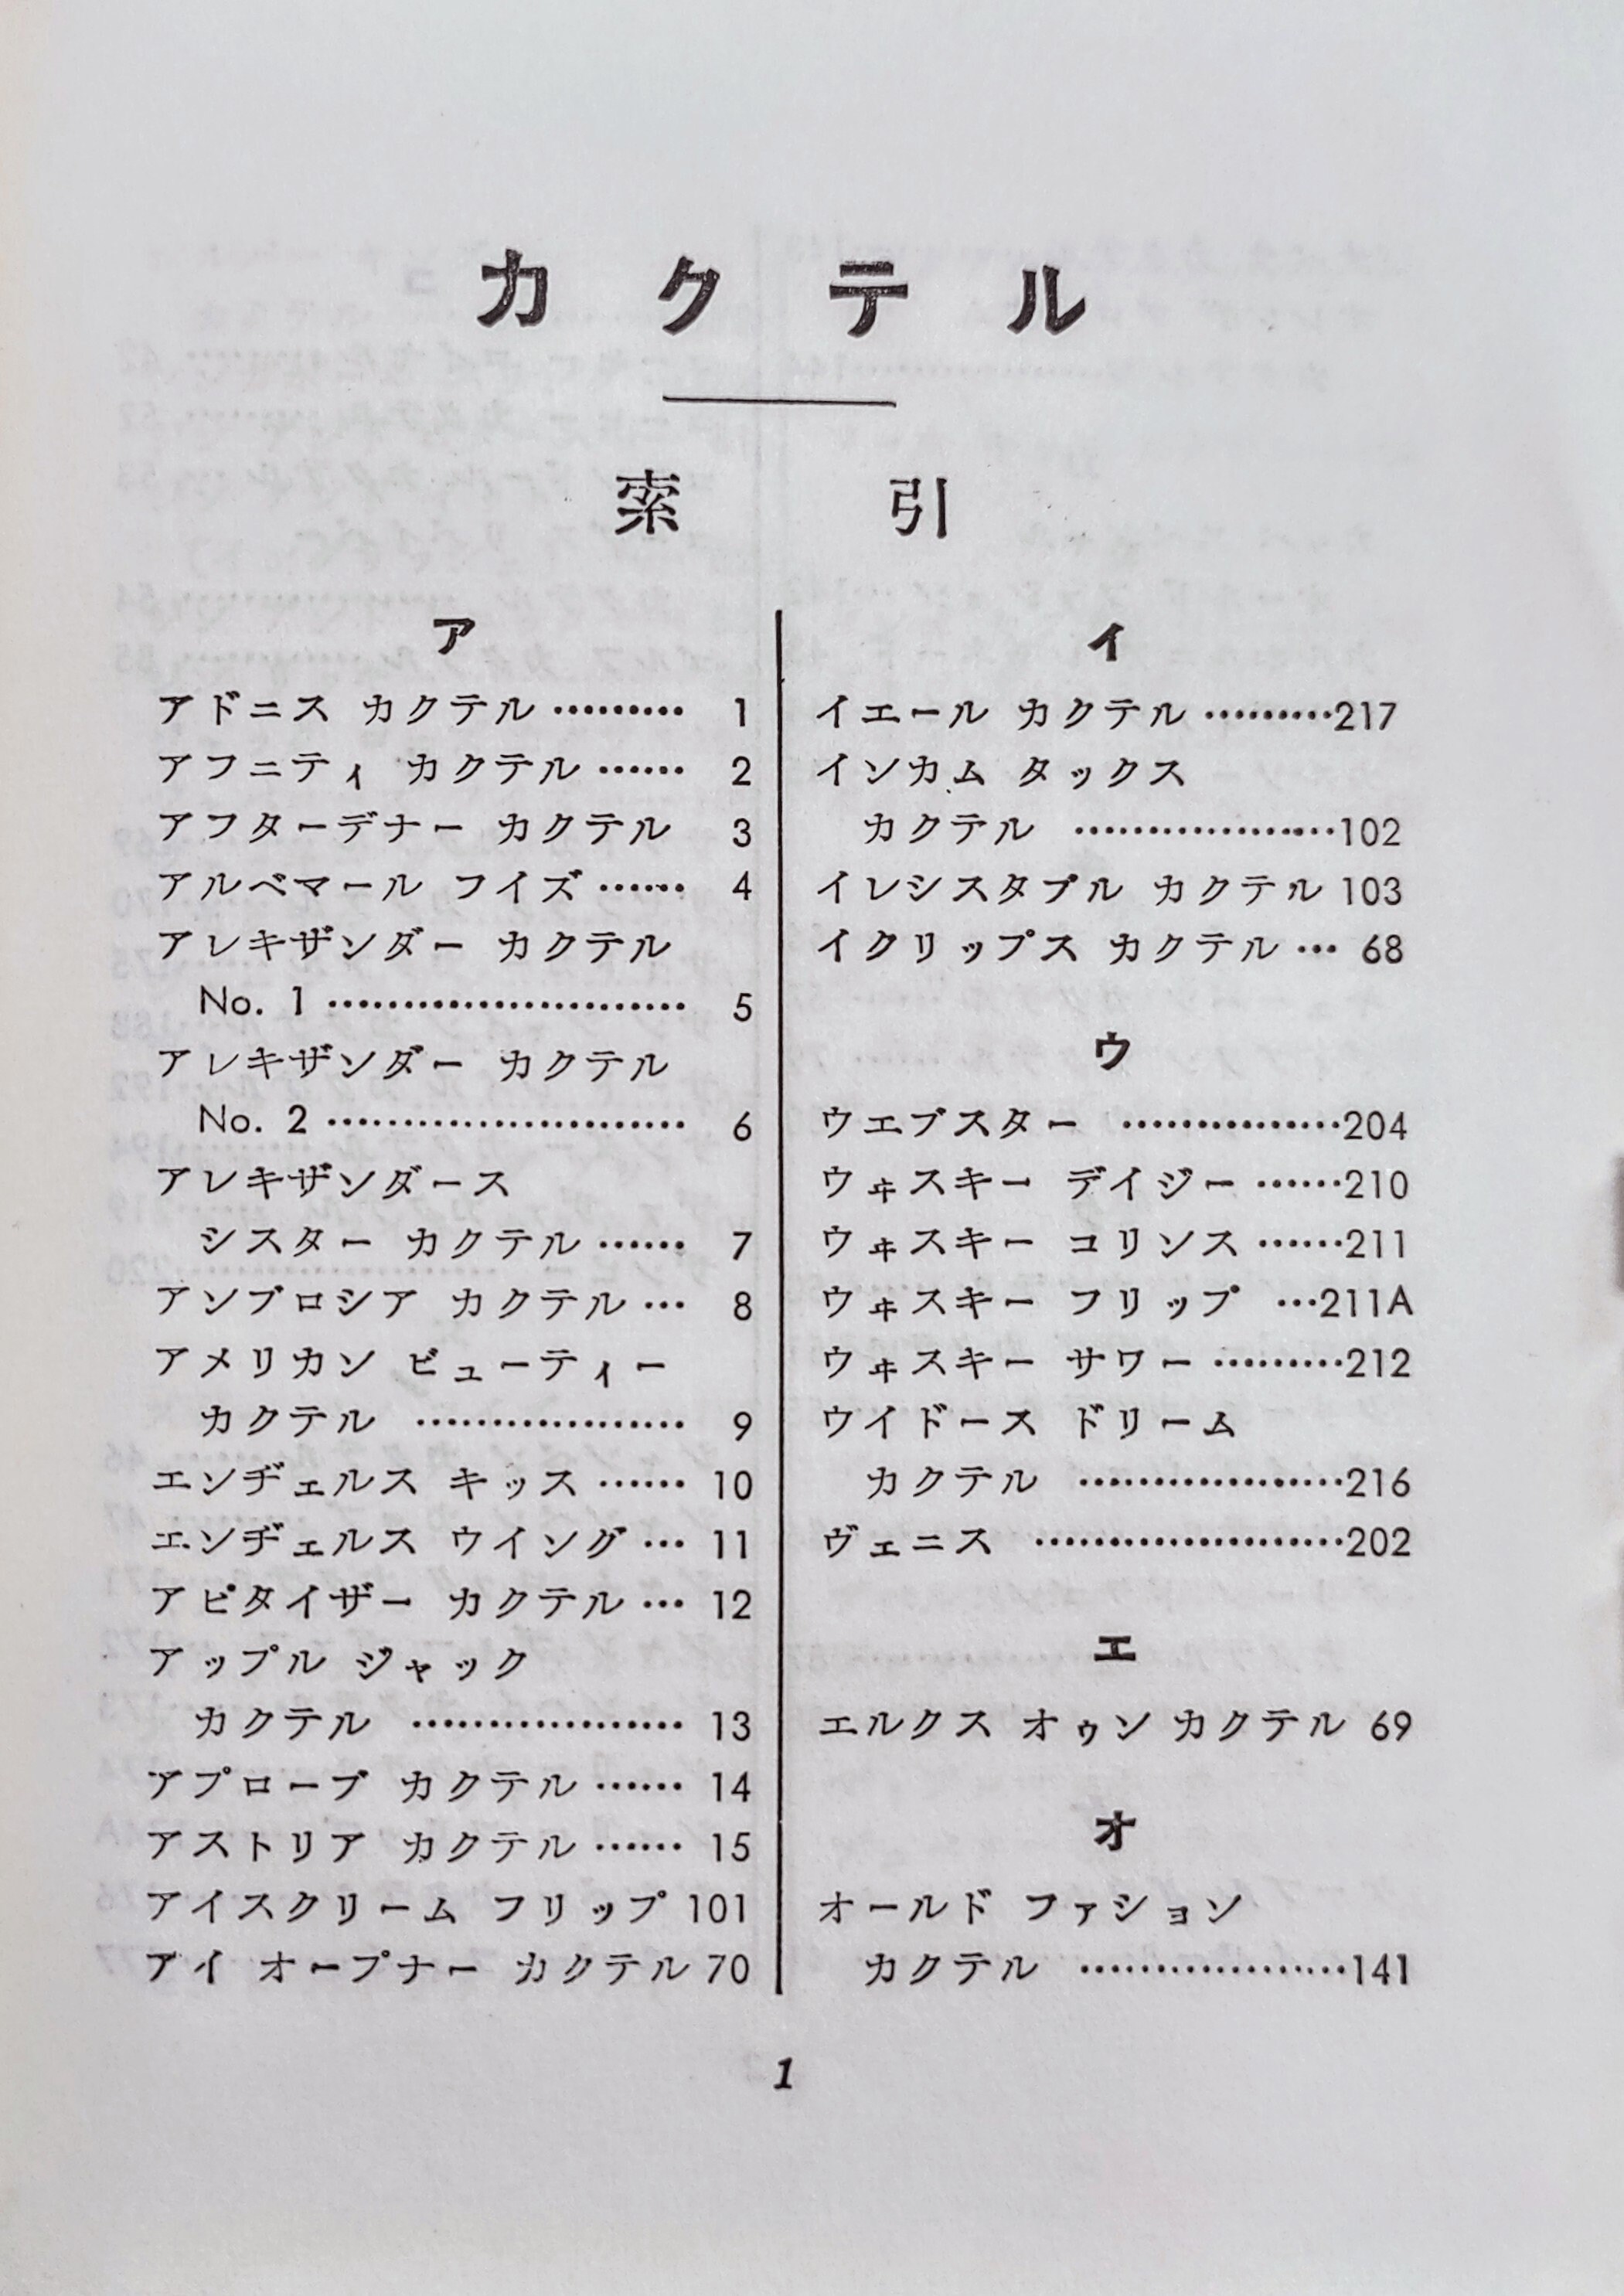 カクテル
索引
ア
アドニス カクテル ……… 1
アフニティ カクテル …… 2
アフターデナー カクテル 3
アルベマール フイズ …… 4
アレキザンダー カクテル
No. 1 …………………… 5
アレキザンダー カクテル
No. 2 …………………… 6
アレキザンダース
シスター カクテル …… 7
アンブロシア カクテル … 8
アメリカン ビューティー
カクテル ……………… 9
エンヂェルス キッス …… 10
エンヂェルス ウイング … 11
アピタイザー カクテル … 12
アップル ジャック
カクテル ……………… 13
アプローブ カクテル …… 14
アストリア カクテル …… 15
アイスクリーム フリップ 101
アイ オープナー カクテル 70
イ
イエール カクテル ………217
インカム タックス
カクテル ………………102
イレシスタブル カクテル 103
イクリップス カクテル … 68
ウ
ウエブスター ……………204
ウヰスキー デイジー ……210
ウヰスキー コリンス ……211
ウヰスキー フリップ …211A
ウヰスキー サワー ………212
ウイドース ドリーム
カクテル ………………216
ヴェニス …………………202
エ
エルクス オゥン カクテル 69
オ
オールド ファション
カクテル ………………141
1